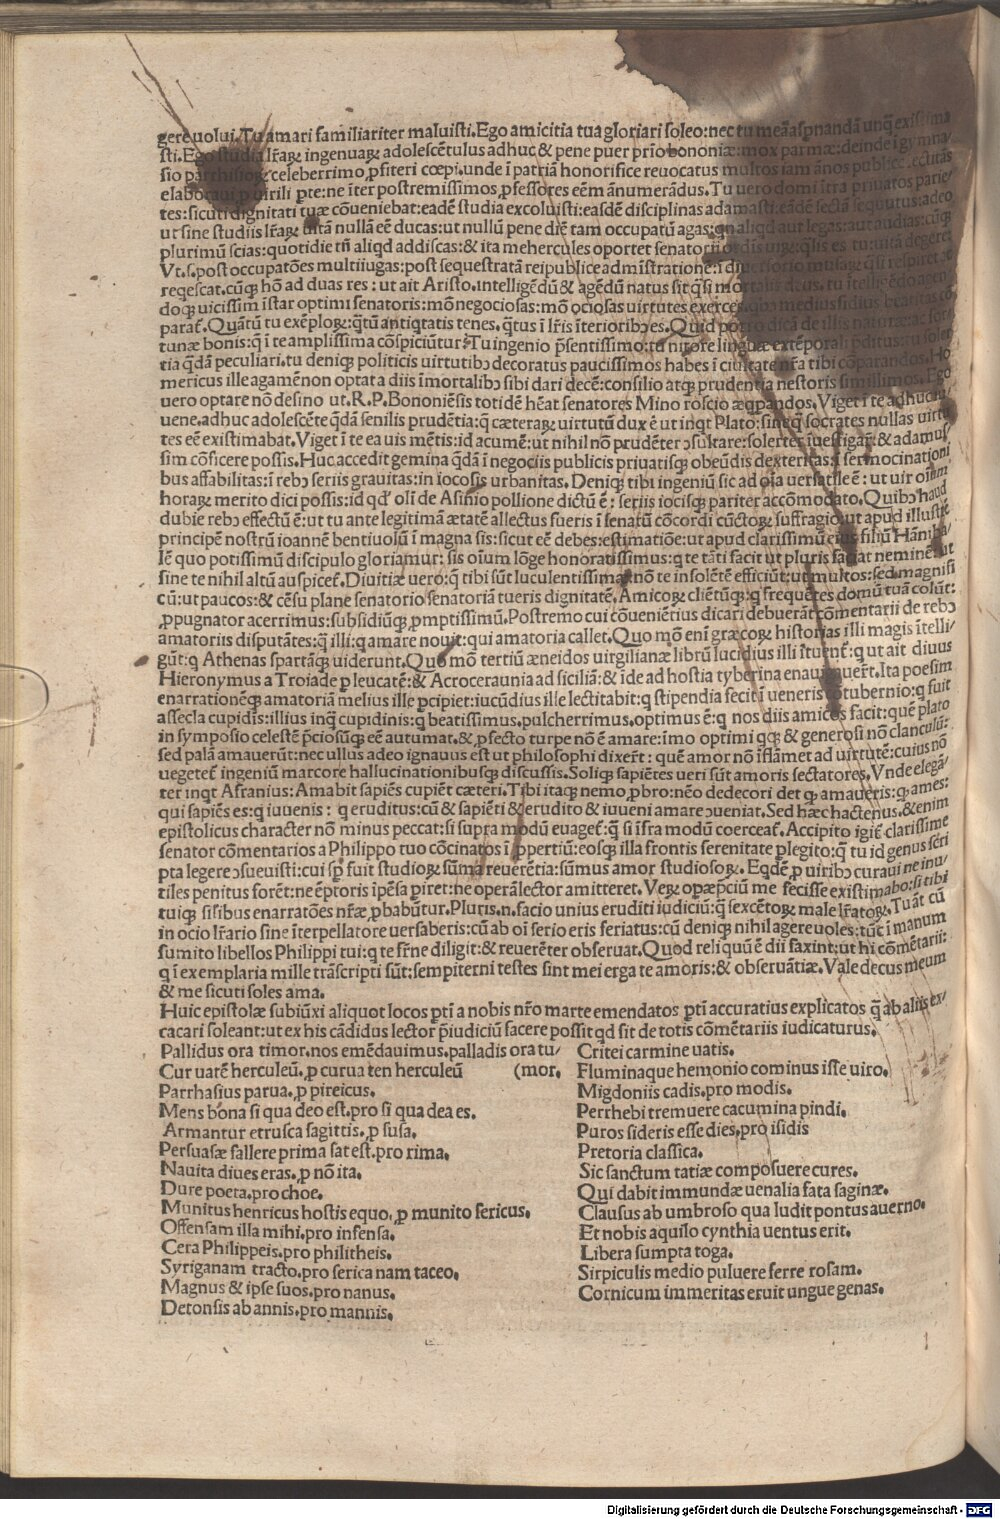 gere uolui. Tu amari familiariter maluisti. Ego amicitia tua gloriari soleo: nec tu meā aspnandā unq̄ existima
sti. Ego studia lr̄aꝝ ingenuaꝝ adolescētulus adhuc & pene puer prīo bononiæ: mox parmæ: deinde ī gymna/
sio parrhisioꝝ celeberrimo ꝓfiteri cœpi. unde ī patriā honorifice reuocatus multos iam ānos publice
elaboraui ꝓ uirili ꝑte: ne īter postremissimos ꝓfessores eēm ānumerādus. Tu uero domi ītra priuatos parie/
tes: sicuti dignitati tuæ cōueniebat: eadē studia excoluisti: easdē disciplinas adamasti: eādē sectā sequutus: adeo
ut sine studiis lr̄aꝝ uitā nullā eē ducas: ut nullū pene diē tam occupatū agas: qn aliqd aut legas: aut audias: cūq;
plurimū scias: quotidie tn̄ aliqd addiscas: & ita mehercules oportet senatorii ordīs uiꝝ: q̄lis es tu: uitā degere
Vt.s. post occupatōes multiiugas: post sequestratā reipublice admīstrationē: ī diuersorio musaꝝ q̄si respiret ac
reqescat. cūq; hō ad duas res: ut ait Aristo. intelligēdū & agēdū natus sit q̄si mortalis deus. tu ītelligēdo agen
doq; uicissim īstar optimi senatoris: mō negociosas: mō ociosas uirtutes exerces. quo mediusfidius beatitas cō
parat̄. Quātū tu exēploꝝ: q̄tū antiqtatis tenes. q̄tus ī lr̄is īterioribꝫ es. Quid porro dicā de illis naturæ: ac for
tunæ bonis: q̄ ī te amplissima cōspiciūtur? Tu ingenio p̄sentissimo: tu nitore linguæ extēporali p̄ditus: tu soler
tia q̄dā peculiari. tu deniq; politicis uirtutibꝫ decoratus paucissimos habes ī ciuitate nr̄a tibi cōparandos. Ho
mericus ille agamēnon optat a diis īmortalibꝫ sibi dari decē: consilio atq; prudentia nestoris simillimos. Ego
uero optare nō desino ut. R.P. Bononiēsis totidē hēat senatores Mino roscio æqpandos. Viget ī te adhuc iu
uene. adhuc adolescēte q̄dā senilis prudētia: q̄ cæteraꝝ uirtutū dux ē ut inqt Plato: sine q̄ socrates nullas uirtu
tes eē existimabat. Viget ī te ea uis mētis: id acumē: ut nihil nō prudēter ꝯsultare: solerter īuestigaꝝ: & adamus/
sim cōficere possis. Huc accedit gemina q̄dā ī negociis publicis priuatisq; obeūdis dexteritas: ī sermocinationi
bus affabilitas: ī rebꝫ seriis grauitas: in iocosis urbanitas. Deniq; tibi ingeniū sic ad oīa uersatile ē: ut uir oīum
horaꝝ merito dici possis: id qd' olī de Asinio pollione dictū ē: seriis iocisq; pariter accōmodato. Quibꝫ haud
dubie rebꝫ effectū ē: ut tu ante legitimā ætatē allectus fueris ī senatū cōcordi cūctoꝝ suffragio. ut apud illustrē
principē nostrū ioannē bentiuolū ī magna sis: sicut eē debes: estimatiōe: ut apud clarissimū eius filiū Hāniba/
lē quo potissimū discipulo gloriamur: sis oīum lōge honoratissimus: q te tāti facit ut pluris faciat neminē: ut
sine te nihil altū auspicet̄. Diuitiæ uero: q̄ tibi sūt luculentissimæ nō te insolētē efficiūt: ut multos: sed magnifi
cū: ut paucos: & cēsu plane senatorio senatoriā tueris dignitatē. Amicoꝝ cliētūq;: q frequētes domū tuā colūt:
ꝓpugnator acerrimus: subsidiūq; ꝓmptissimū. Postremo cui cōueniētius dicari debuerāt cōmentarii de rebꝫ
amatoriis disputātes: q̄ illi: q amare nouit: qui amatoria callet. Quo mō enī græcoꝝ historias illi magis ītelli/
gūt: q Athenas spartāq; uiderunt. Quo mō tertiū æneidos uirgilianæ librū lucidius illi ītuent̄: q ut ait diuus
Hieronymus a Troiade ꝑ leucatē: & Acroceraunia ad siciliā: & īde ad hostia tyberina enauigauer̄t. Ita poesim
enarrationēq; amatoriā melius ille ꝑcipiet: iucūdius ille lectitabit: q stipendia fecit ī ueneris cōtubernio: q fuit
assecla cupidīs: illius inq̄ cupidinis: q beatissimus. pulcherrimus. optimus ē: q nos diis amicos facit: quē plato
in symposio celestē p̄ciosūq; eē autumat. & ꝓfecto turpe nō ē amare: īmo optimi qq; & generosi nō clanculū:
sed palā amauerūt: nec ullus adeo ignauus est ut philosophi dixer̄t: quē amor nō īflāmet ad uirtutē: cuius nō
uegetet̄ ingeniū marcore hallucinationibusq; discussis. Soliq; sapiētes ueri sūt amoris sectatores. Vnde elegā/
ter inqt Afranius: Amabit sapiēs cupiēt cæteri. Tibi itaq; nemo ꝓbro: nēo dedecori det q; amaueris: q; ames:
qui sapiēs es: q iuuenis: q eruditus: cū & sapiēti & erudito & iuueni amare ꝯueniat. Sed hæc hactenus. & enim
epistolicus character nō minus peccat: si supra modū euaget̄: q̄ si īfra modū coerceat̄. Accipito igit̄ clarissime
senator cōmentarios a Philippo tuo cōcinatos ī ꝓpertiū: eosq; illa frontis serenitate ꝑlegito: q̄ tu id genus scri
pta legere ꝯsueuisti: cui sp̄ fuit studioꝝ sūma reuerētia: sūmus amor studiosoꝝ. Eqdē ꝓ uiribꝫ curaui ne inu/
tiles penitus forēt: ne ēptoris īpēsa ꝑiret: ne operā lector amitteret. Veꝝ opæp̄ciū me fecisse existimabo: si tibi
tuiq; sīlibus enarratōes nr̄æ ꝓbabūtur. Pluris .n. facio unius eruditi iudiciū: q̄ sexcētoꝝ male lr̄atoꝝ. Tu āt cū
in ocio lr̄ario sine īterpellatore uersaberis: cū ab oī serio eris feriatus: cū deniq; nihil agere uoles: tūc ī manum
sumito libellos Philippi tui: q te fr̄ne diligit: & reuerēter obseruat. Quod reliquū ē dii faxint: ut hi cōmētarii:
q ī exemplaria mille trāscripti sūt: sempiterni testes sint mei erga te amoris: & obseruātiæ. Vale decus meum
& me sicuti soles ama.
Huic epistolæ subiūxi aliquot locos ꝑtī a nobis nr̄o marte emendatos ꝑtī accuratius explicatos q̄ ab aliis ex/
cacari soleant: ut ex his cādidus lector p̄iudiciū facere possit qd sit de totis cōmētariis iudicaturus.
Pallidus ora timor. nos emēdauimus. palladis ora tu/
Cur uatē herculeū. ꝓ curua ten herculeū (mor.
Parrhasius parua. ꝓ pireicus.
Mens bona si qua deo est. pro si qua dea es.
Armantur etrusca sagittis. ꝓ susa.
Persuasæ fallere prima sat est. pro rima.
Nauita diues eras. ꝓ nō ita.
Dure poeta. pro choe.
Munitus henricus hostis equo. ꝓ munito sericus.
Offensam illa mihi. pro infensa.
Cera Philippeis. pro philitheis.
Syriganam tracto. pro serica nam taceo.
Magnus & ipse suos. pro nanus.
Detonsis ab annis. pro mannis.
Critei carmine uatis.
Fluminaque hemonio cominus isse uiro.
Migdoniis cadis. pro modis.
Perrhebi tremuere cacumina pindi.
Puros sideris esse dies. pro isidis
Pretoria classica.
Sic sanctum tatiæ composuere cures.
Qui dabit immundæ uenalia fata saginæ.
Clausus ab umbroso qua ludit pontus auerno.
Et nobis aquilo cynthia uentus erit.
Libera sumpta toga.
Sirpiculis medio puluere ferre rosam.
Cornicum immeritas eruit ungue genas.
Digitalisierung gefördert durch die Deutsche Forschungsgemeinschaft - DFG